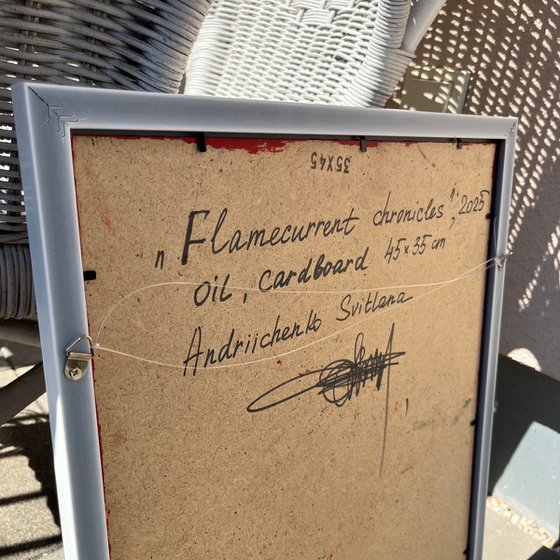 35X45
"Flamecurrent chronicles", 2025
oil, cardboard 45x35 cm
Andriichenko Svitlana